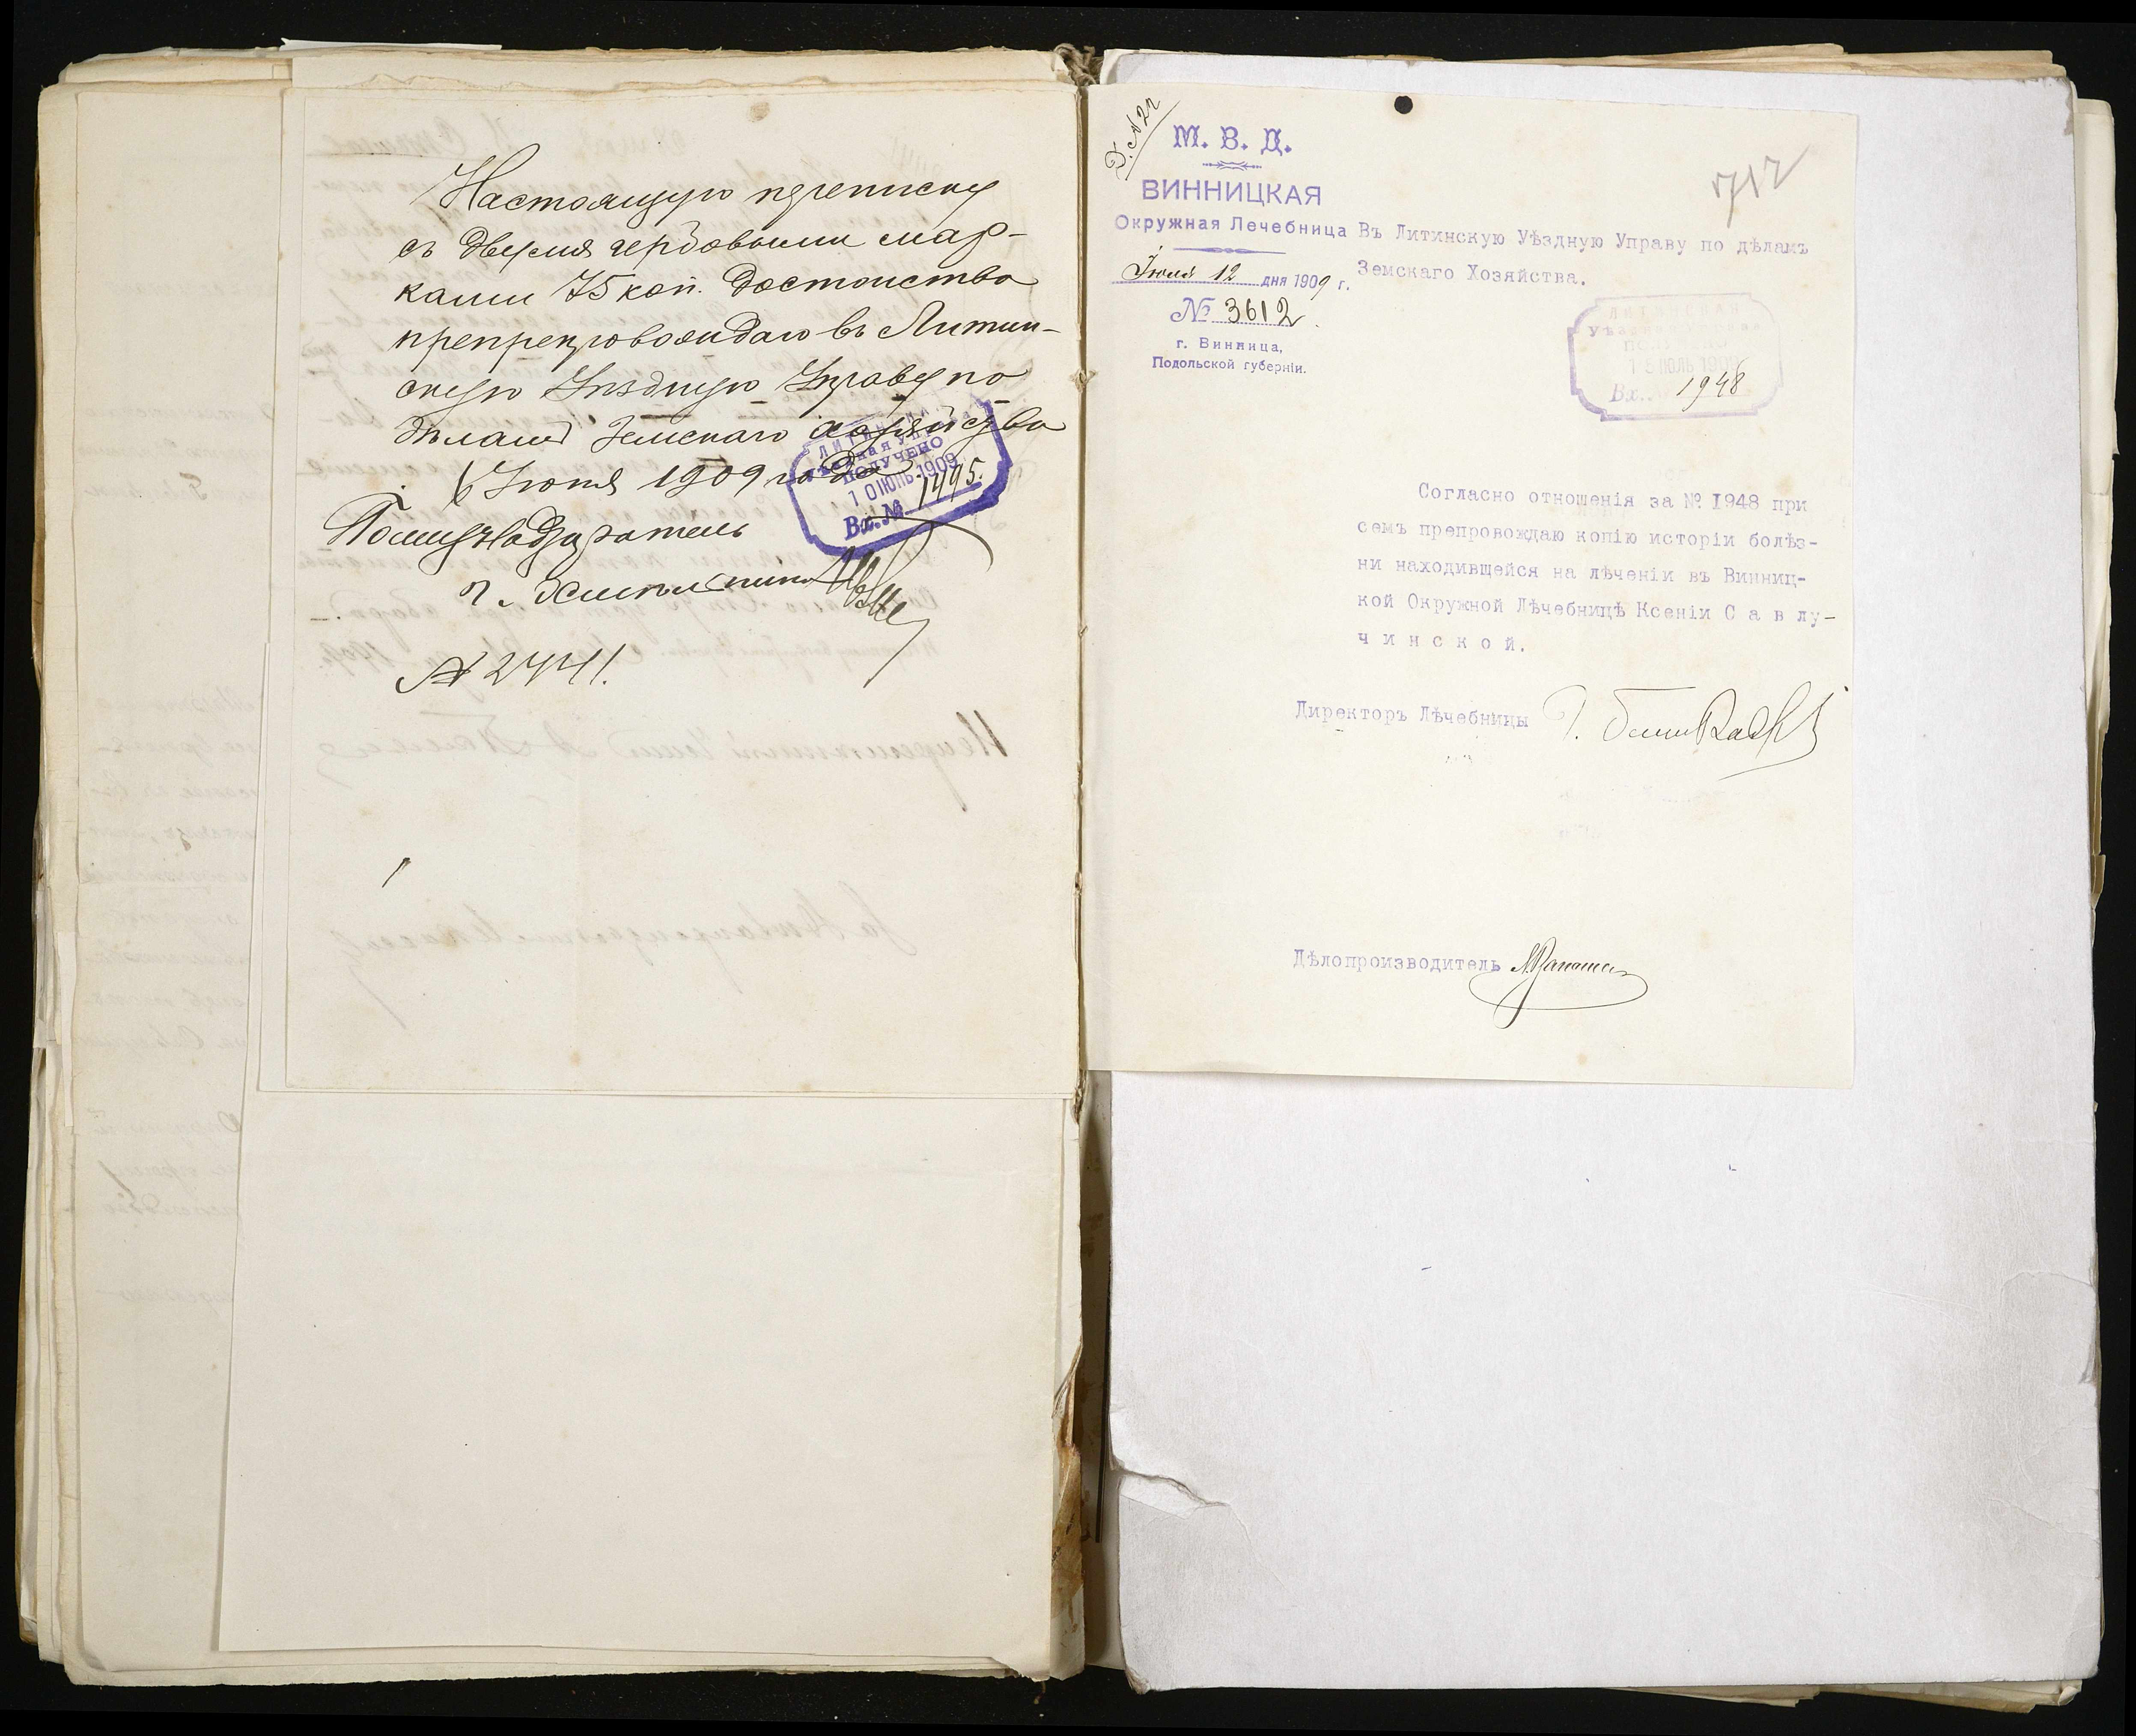 Настоящую переписку
съ двумя гербовыми мар-
ками 75 коп. достоинства
препровождаю въ Литин-
скую Уѣздную Управу по
дѣламъ Земскаго Хозяйства
Июня 1909 года
Полиц. Надзиратель
г. Хмѣльника
№ 2441.
ЛИТИН
Уѣздная Управа
ПОЛУЧЕНО
10 ИЮНЬ 1909
Вх. № 1495.
М. В. Д.
ВИННИЦКАЯ
Окружная Лечебница
Іюля 12 дня 1909 г.
№ 3612
г. Винница,
Подольской губерніи.
Въ Литинскую Уѣздную Управу по дѣламъ
Земскаго Хозяйства.
ИЮЛЬ 1909
Вх. № 1948
Согласно отношенія за № 1948 при
семъ препровождаю копію исторіи болѣз-
ни находившейся на лѣченіи въ Винниц-
кой Окружной Лѣчебницѣ Ксеніи С а в лу-
ч и н с к о й.
Директоръ Лѣчебницы
Дѣлопроизводитель